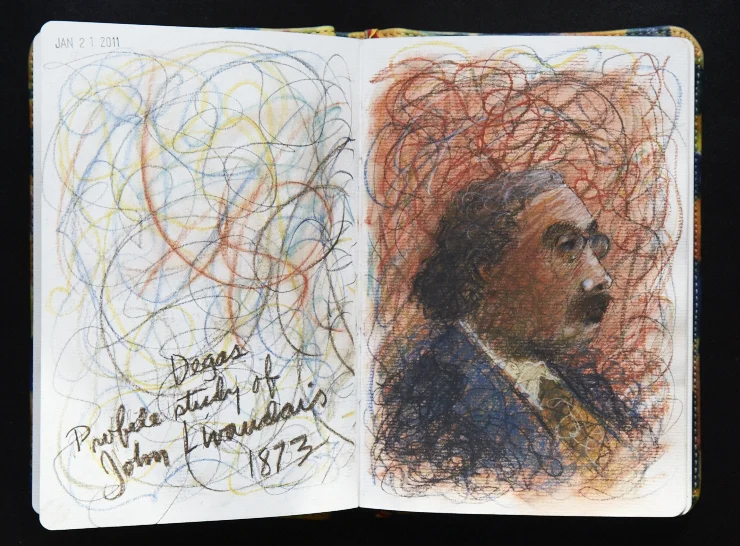 JAN 21 2011
Degas
Profile study of
John Lwaudais
1873